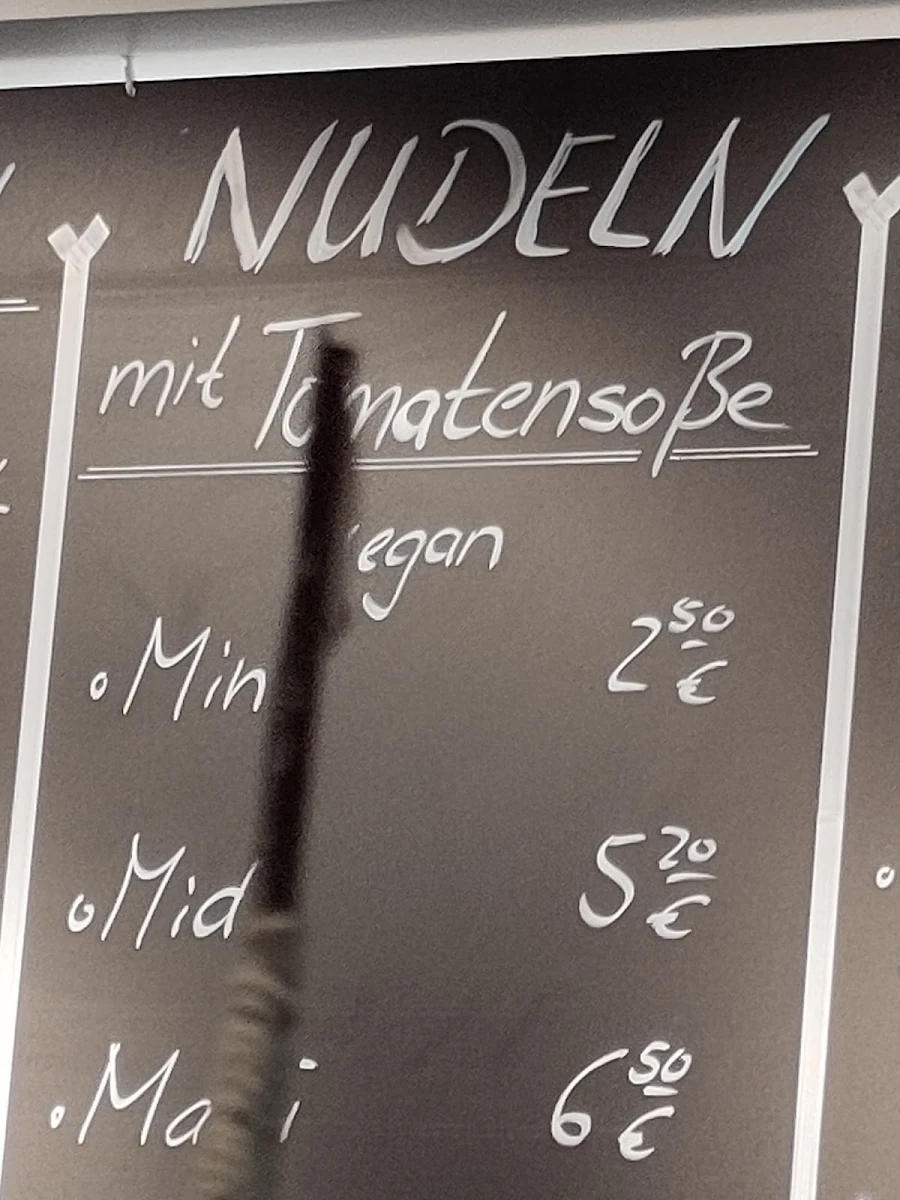 NUDELN
mit Tomatensoße
egan
Min 2 50 €
Mid 5 20 €
Ma i 6 50 €